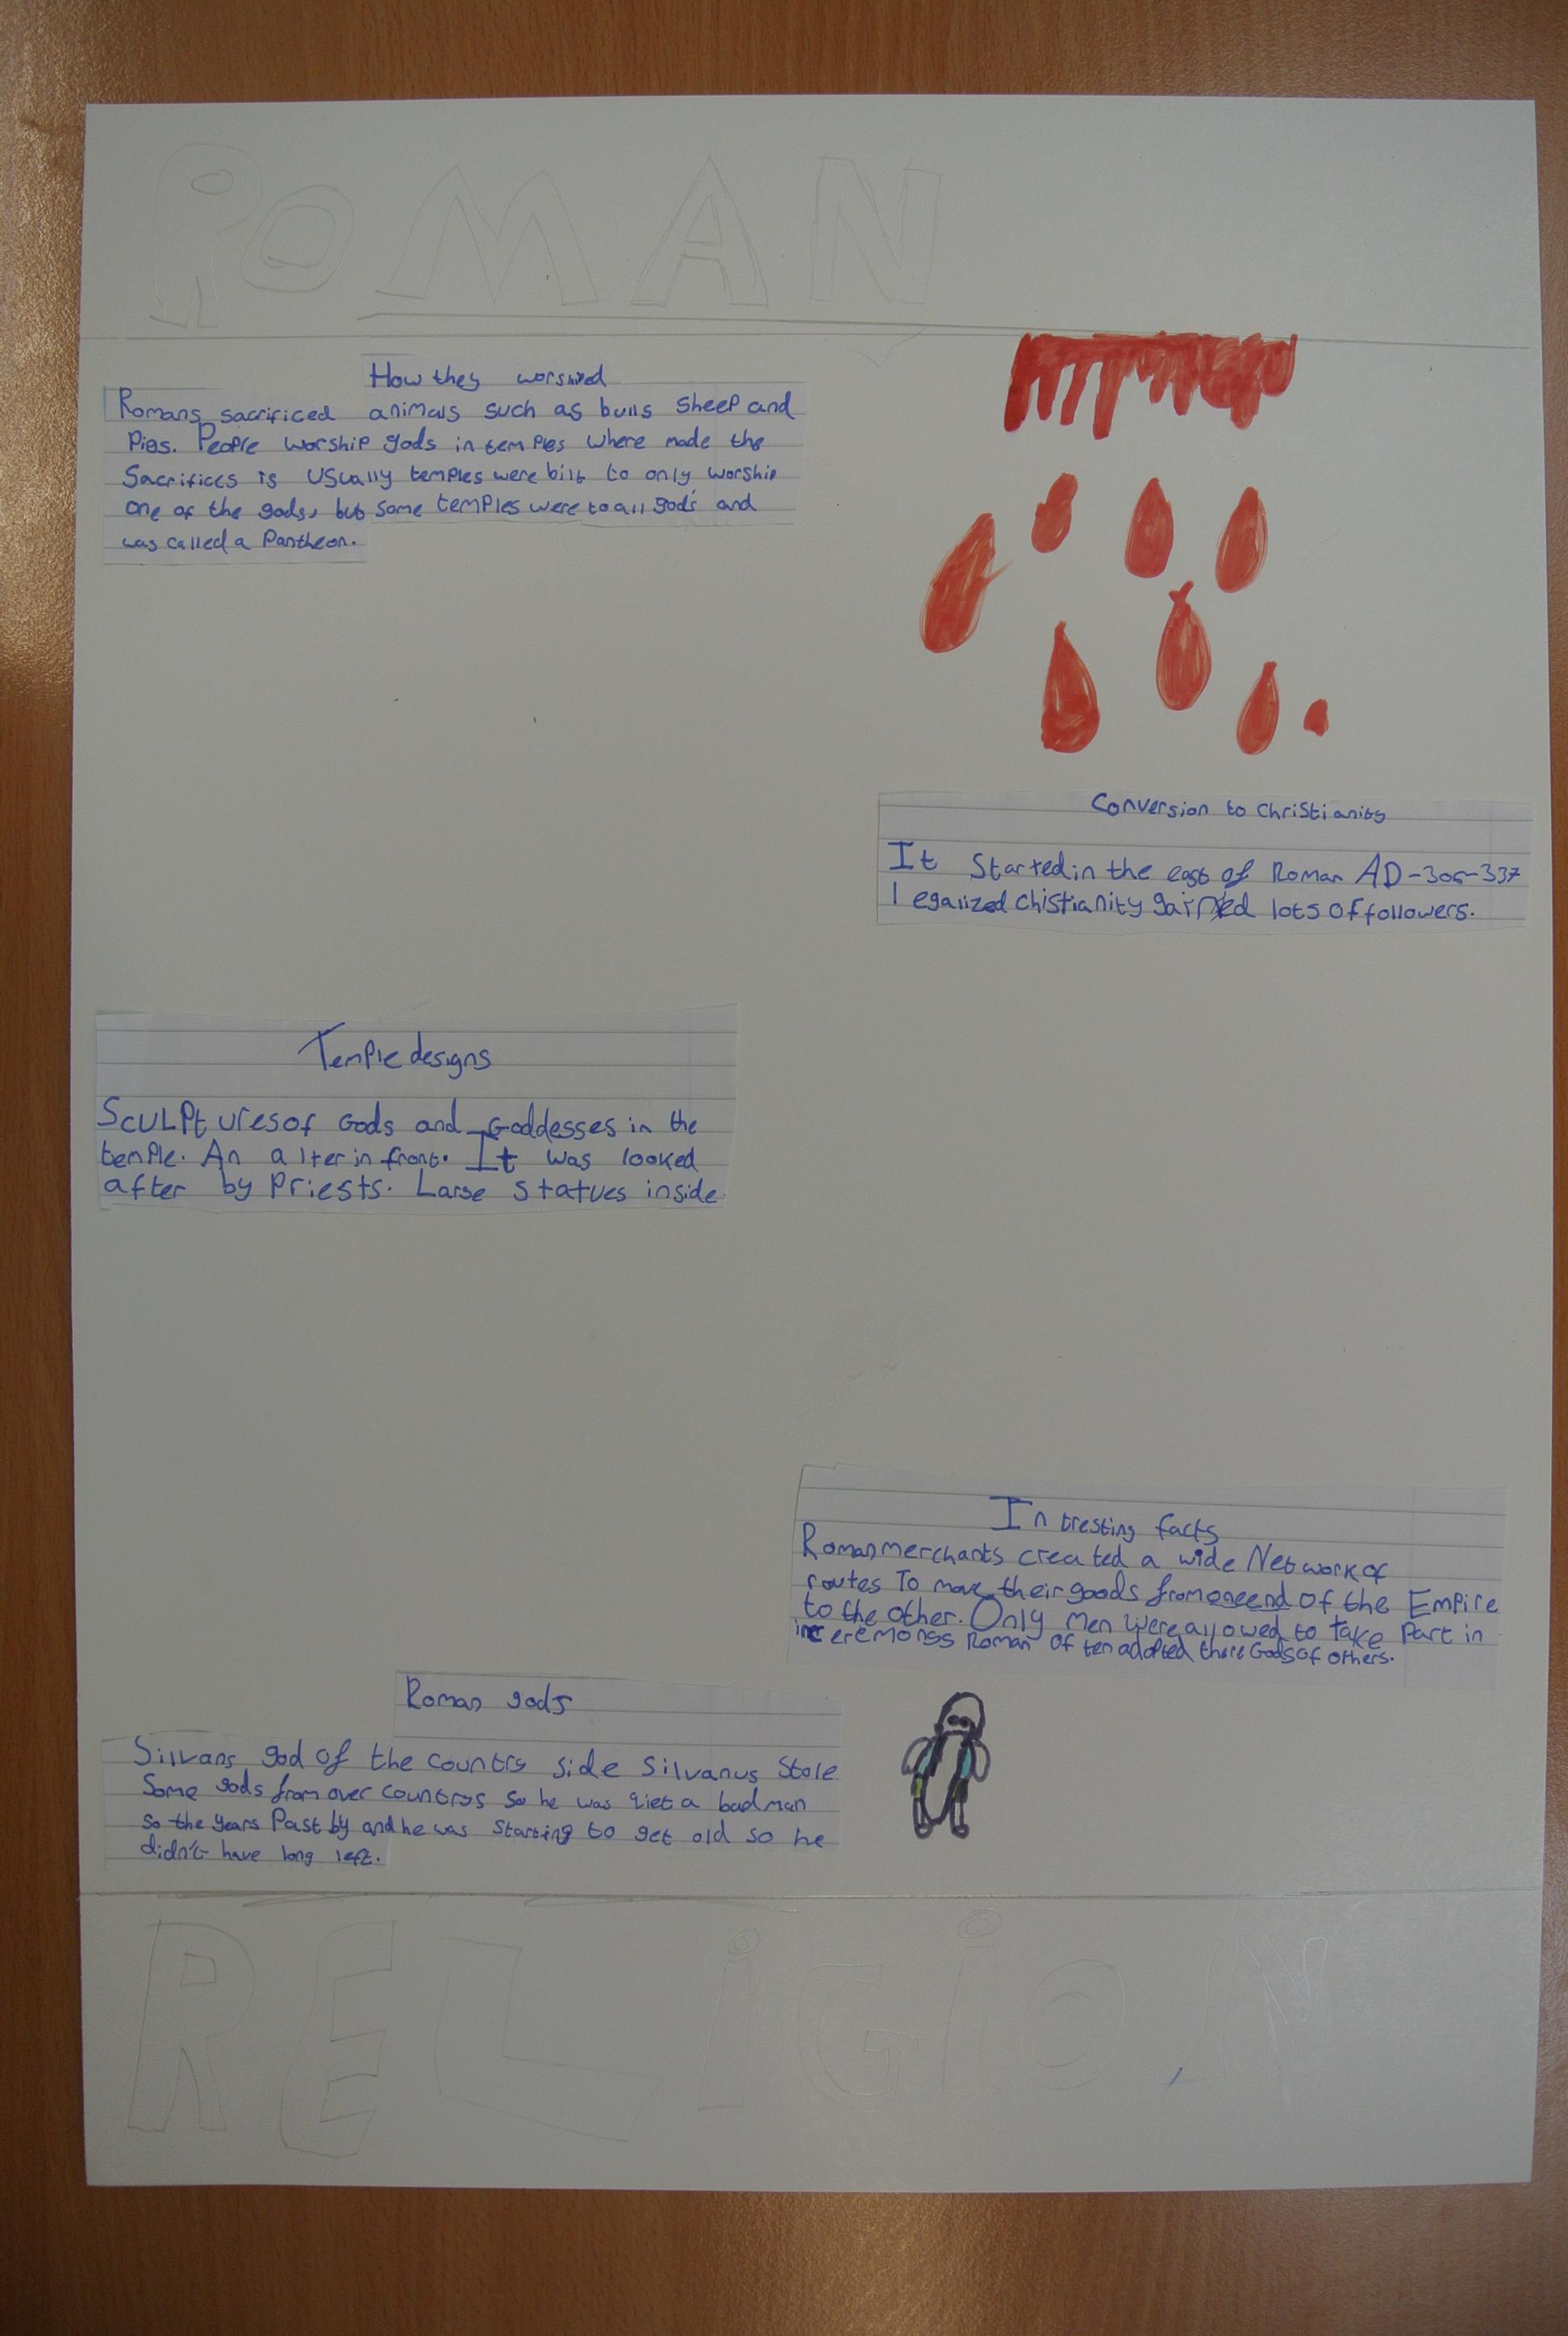 ROMAN
How they worshied
Romans sacrificed animals such as bulls sheep and
Pigs. People worship gods in temples where made the
Sacrifices is usually temples were bilt to only worship
one of the gods, but some temples were to all gods and
was called a Pantheon.
Conversion to Christianity
It Started in the east of Roman AD-306-337
legalized Chistianity gained lots of followers.
Temple designs
Sculptures of Gods and Goddesses in the
temple. An alter in front. It was looked
after by Priests. Large statues inside
Intresting facts
Roman merchants created a wide Network of
routes To move their goods from one end of the Empire
to the other. Only men were allowed to take Part in
ceremonss Roman of ten adopted there Gods of others.
Roman gods
Silvans god of the country side Silvanus Stole
Some gods from over countrys so he was qiet a bad man
so the years Past by and he was starting to get old so he
didn't have long left.
RELiGiON